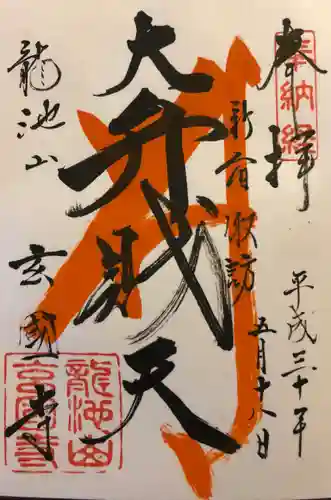 奉拝
奉納経
新宿諏訪
平成三十年
五月十八日
大弁財天
龍池山
玄國寺
龍池山
玄国寺